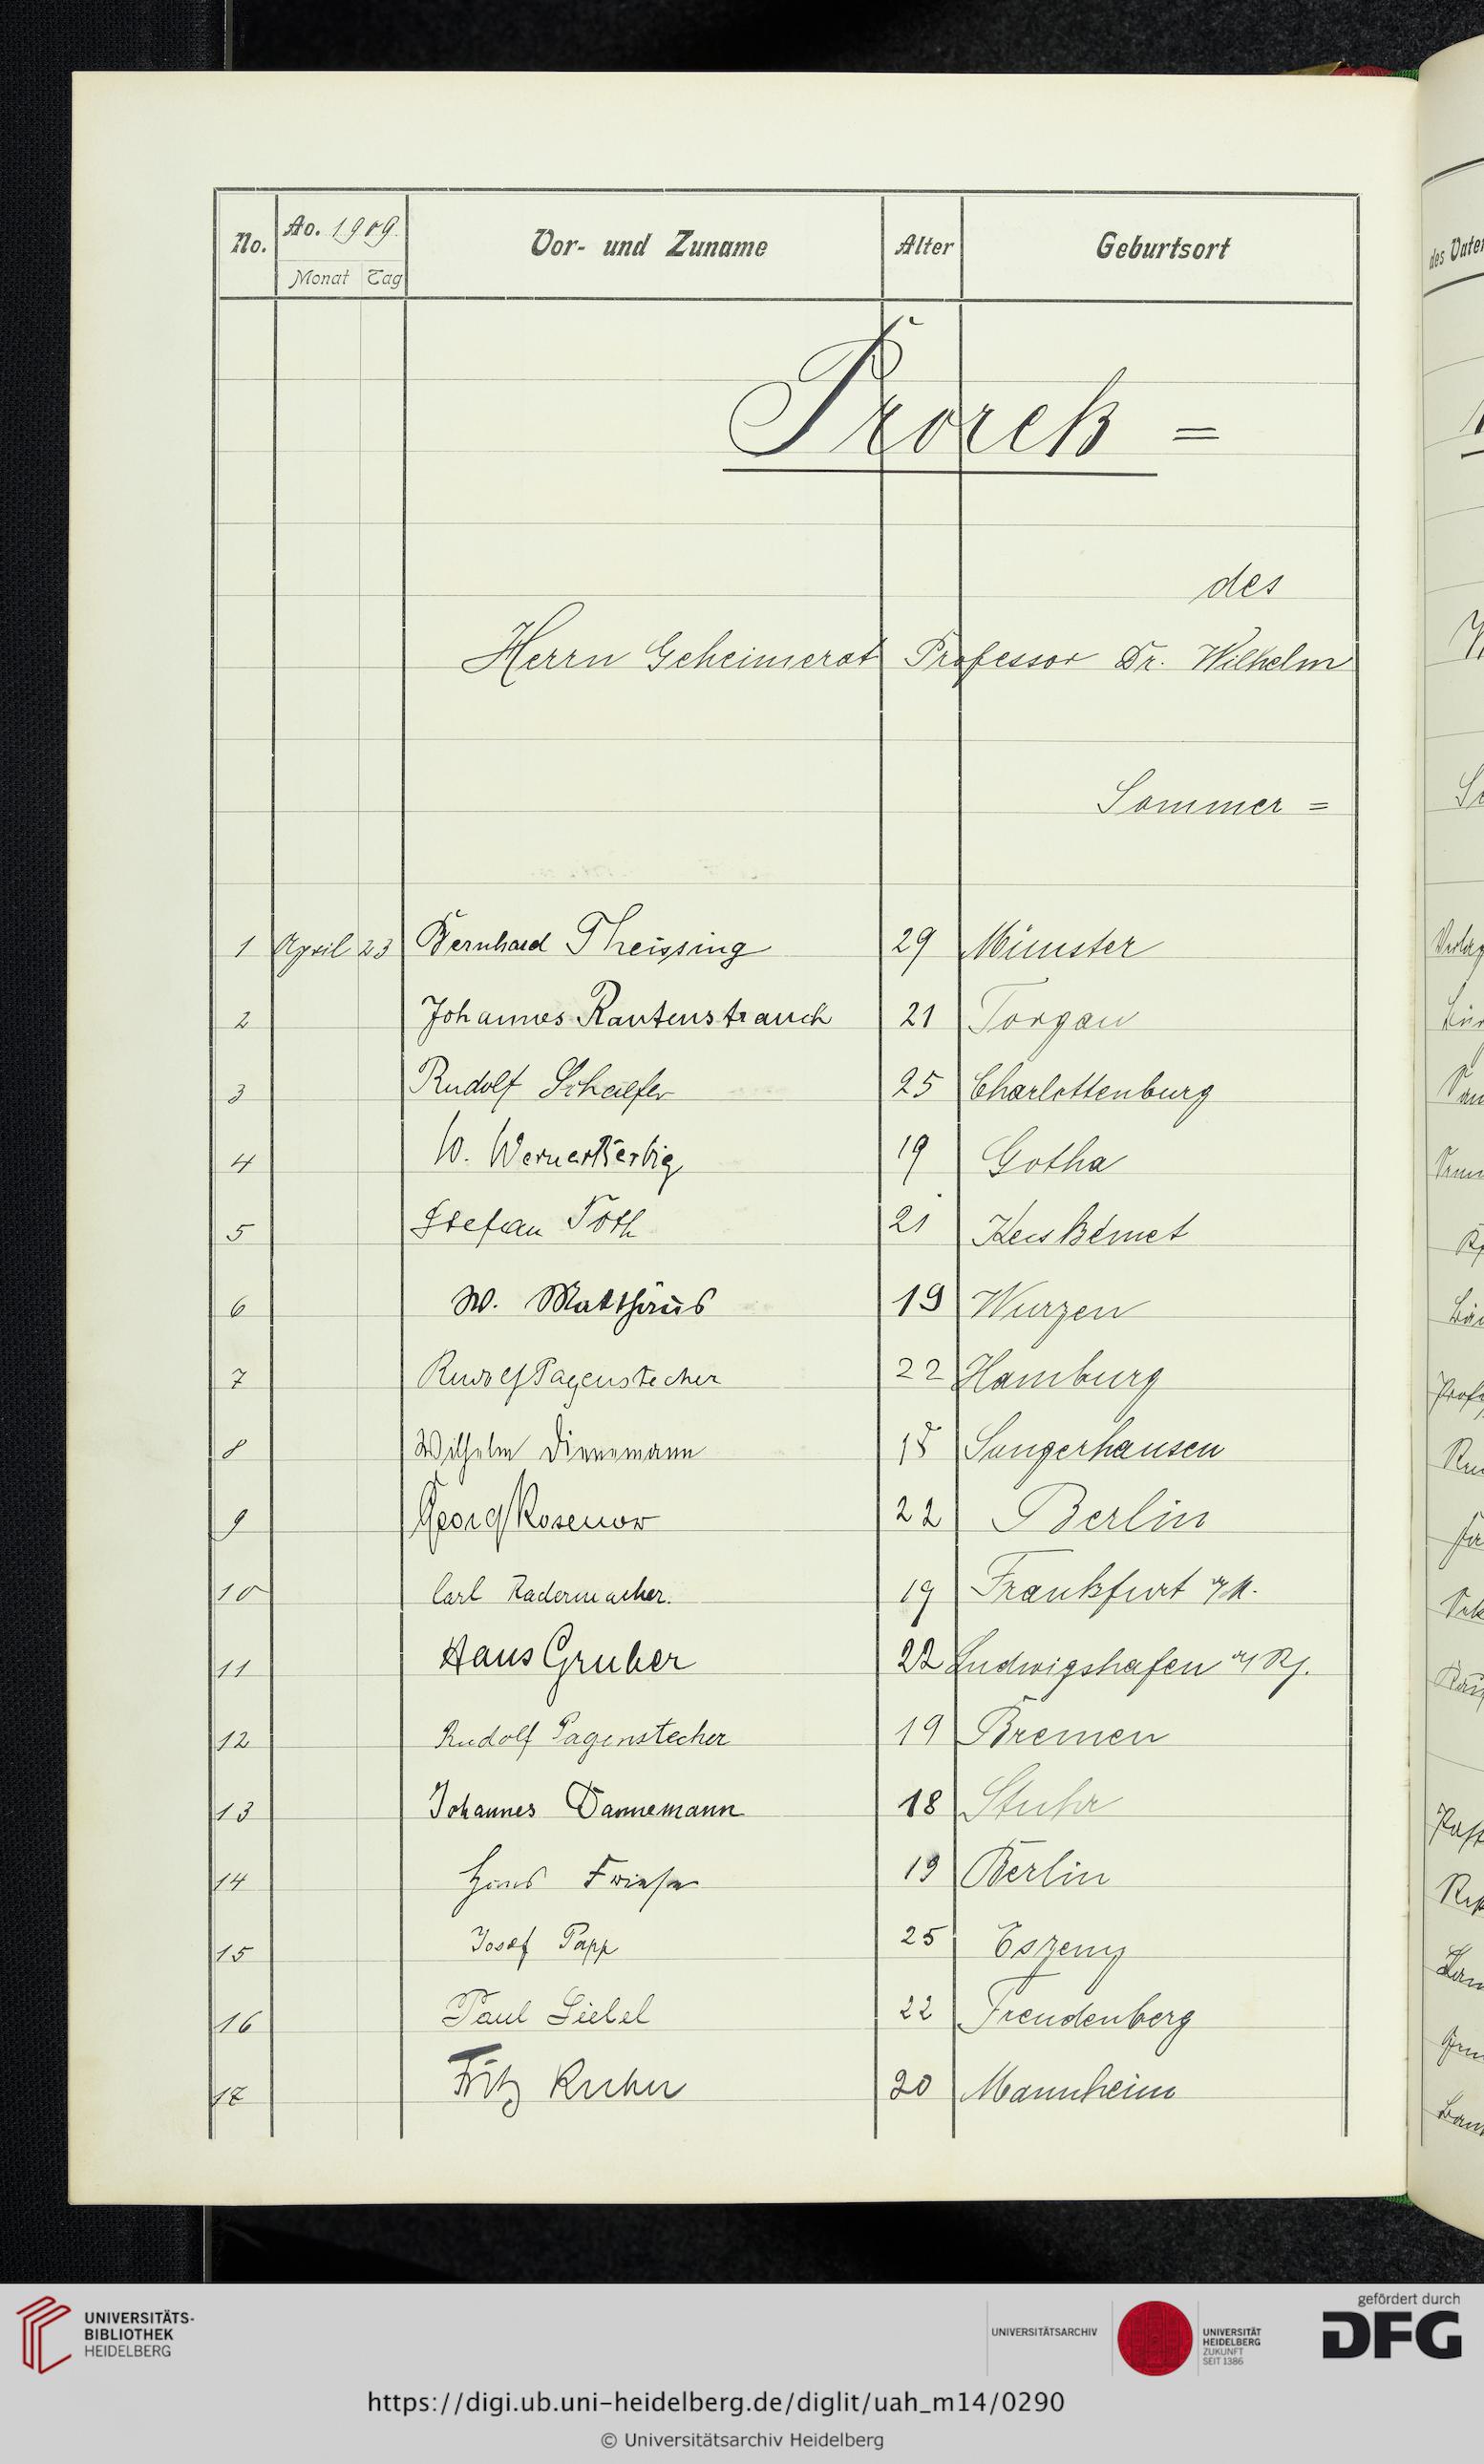 No. Ao. 1909. Vor- und Zuname Alter Geburtsort
Monat Tag
Prorek =
des
Herrn Geheimerat Professor Dr. Wilhelm
Sommer =
1 April 23 Bernhard Theissing 29 Münster
2 Johannes Rautenstrauch 21 Torgau
3 Rudolf Schaefer 25 Charlottenburg
4 W. Werner Kerbig 19 Gotha
5 Stefan Tóth 21 Kecskémet
6 W. Matthäus 19 Wurzen
7 Rudolf Pagenstecher 22 Hamburg
8 Wilhelm Dinnemann 18 Sangerhausen
9 Georg Rosenow 22 Berlin
10 Carl Radermacher. 19 Frankfurt a/M.
11 Hans Gruber 22 Ludwigshafen a/Rh.
12 Rudolf Pagenstecher 19 Bremen
13 Johannes Dannemann 18 Stuhr
14 Hans Friese 19 Berlin
15 Josef Papp 25 Eszeny
16 Paul Siebel 22 Freudenberg
17 Fritz 20 Mannheim
UNIVERSITÄTS-
BIBLIOTHEK
HEIDELBERG
UNIVERSITÄTSARCHIV
UNIVERSITÄT
HEIDELBERG
ZUKUNFT
SEIT 1386
gefördert durch
DFG
https://digi.ub.uni-heidelberg.de/diglit/uah_m14/0290
© Universitätsarchiv Heidelberg